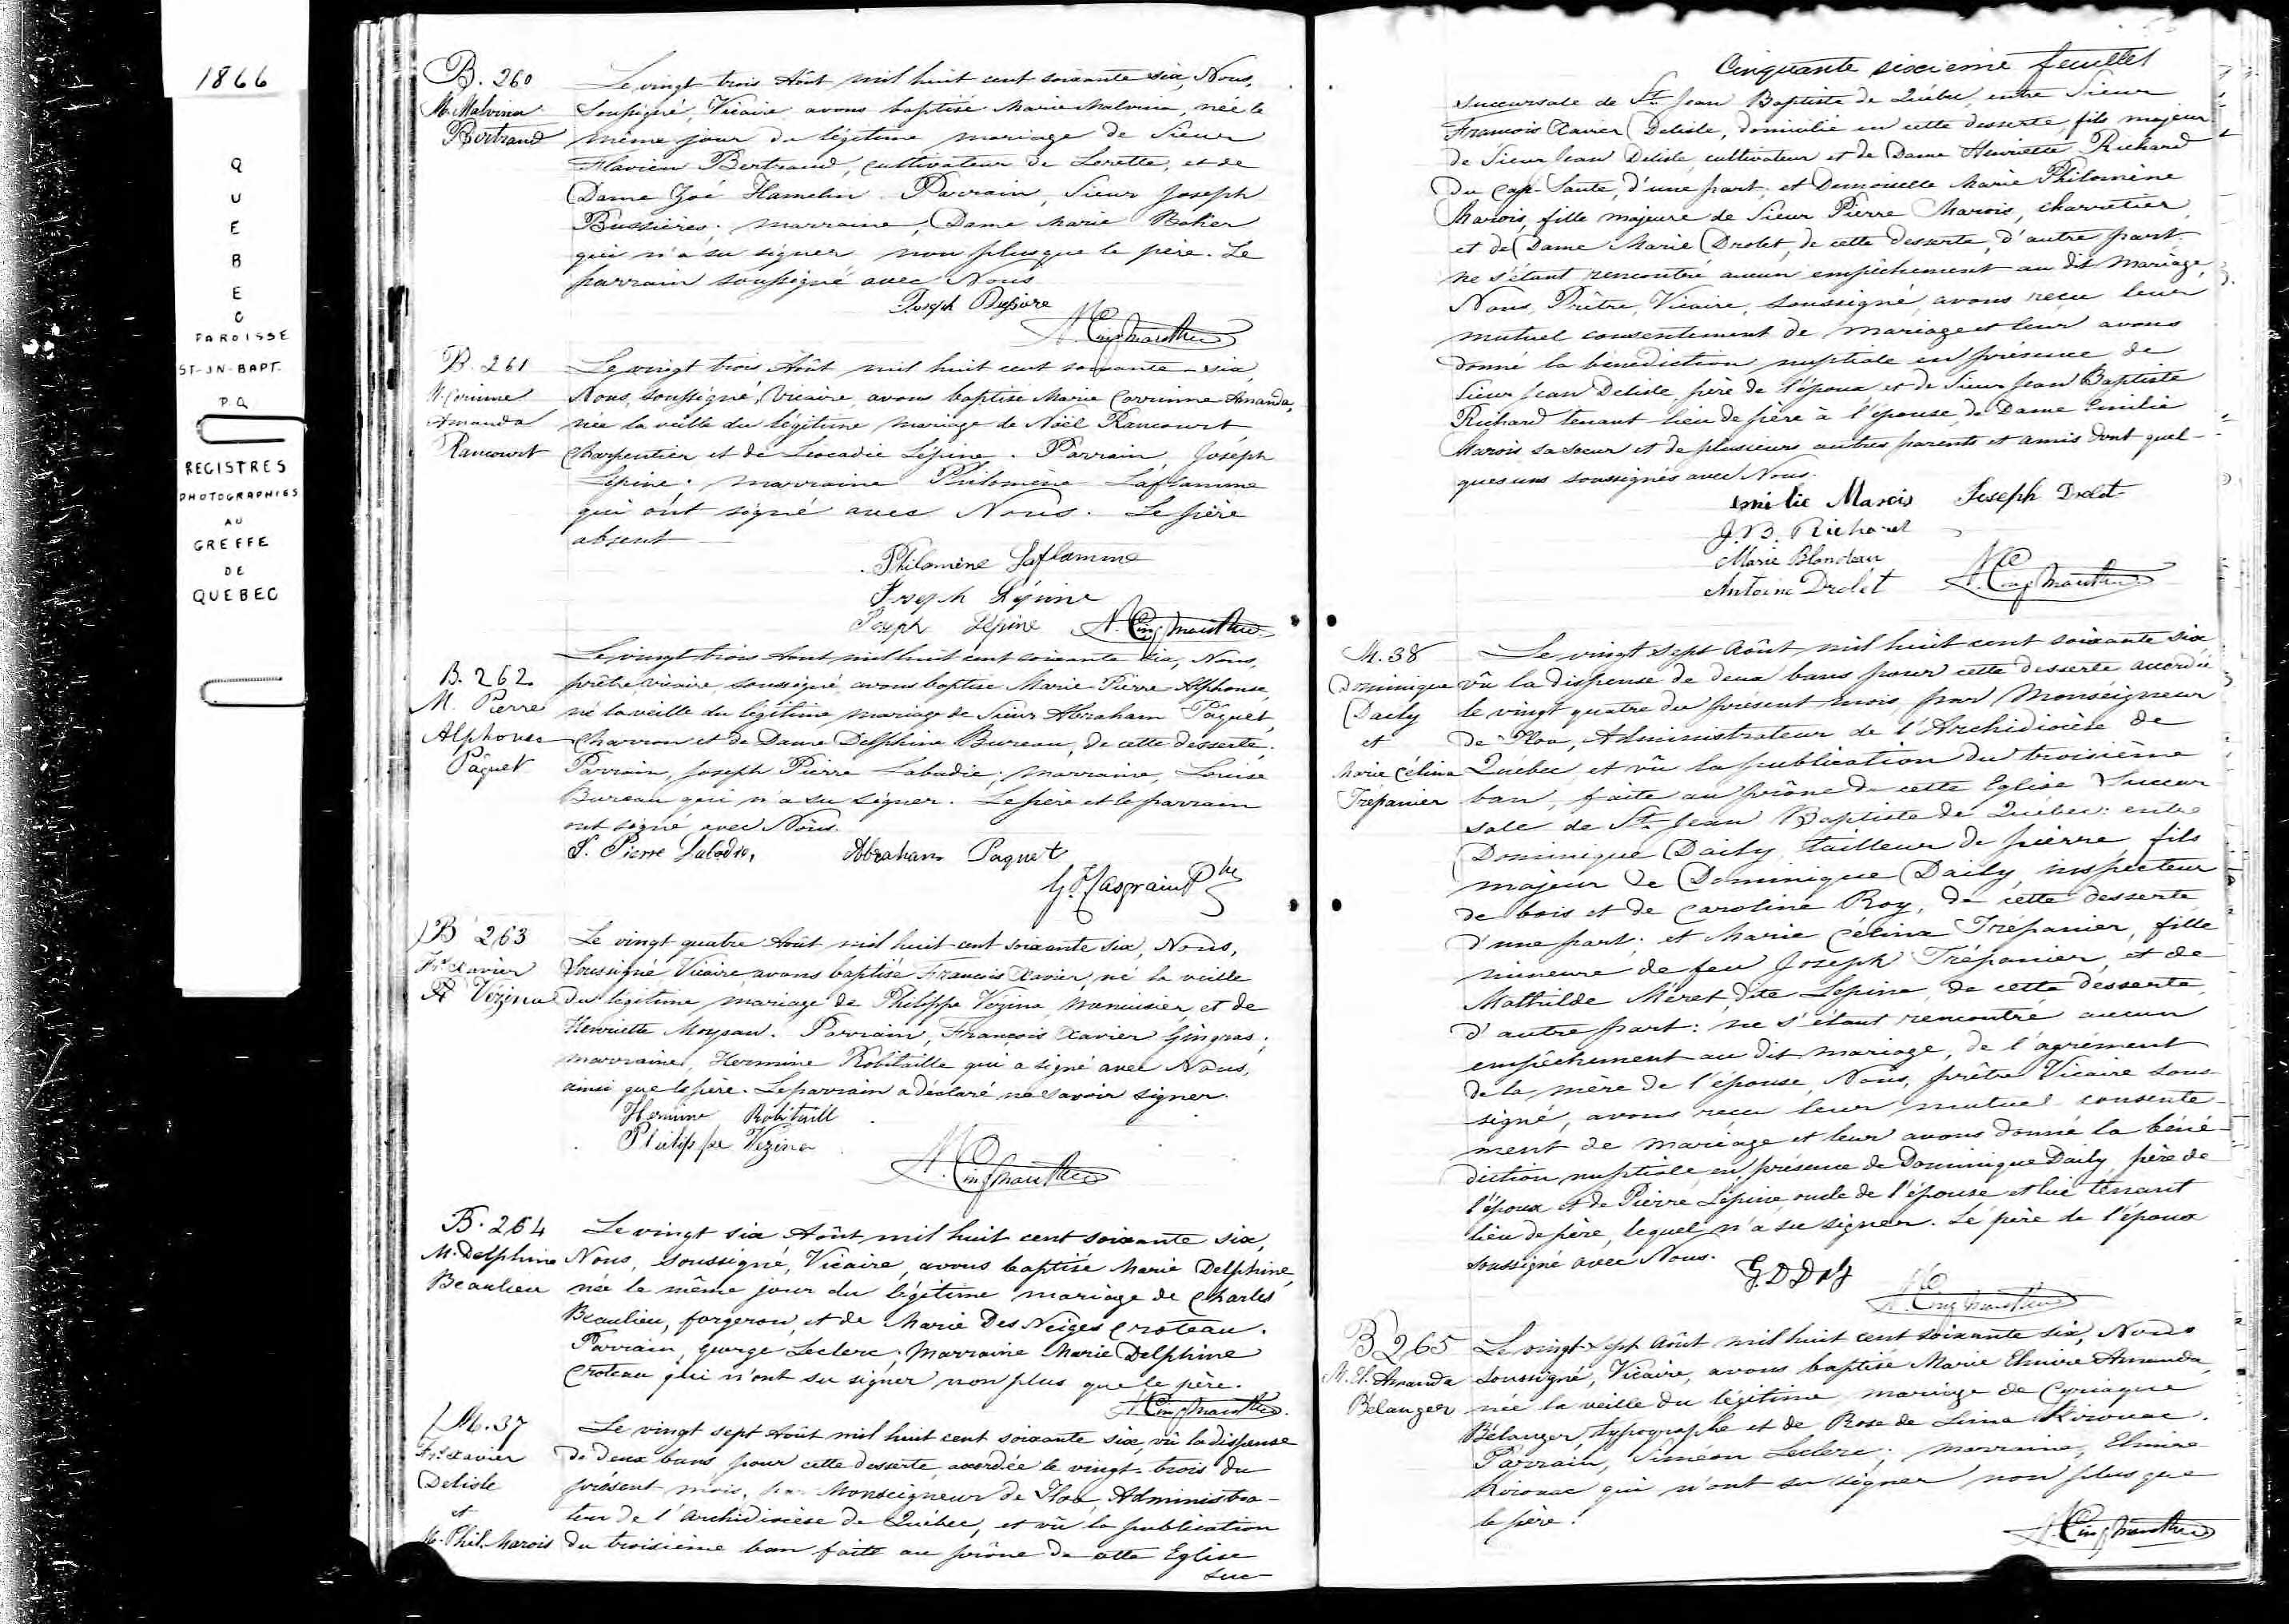 1866
Q
U
E
B
E
C
PAROISSE
ST-JN-BAPT.
P.Q
REGISTRES
PHOTOGRAPHIES
AU
GREFFE
DE
QUEBEC
B. 260
M. Malvina
Bertrand
Le vingt trois Août mil huit cent soixante six, Nous,
Soussigné, Vicaire avons baptisé Marie Malvina, née le
même jour du légitime mariage de Sieur
Flavien Bertrand, cultivateur de Lorette, et de
Dame Zoé Hamelin. Parrain, Sieur Joseph
Bussières; marraine, Dame Marie
qui n'a su signer non plus que le père. Le
parrain soussigné avec Nous
Joseph Bussiere
B. 261
M. Corinne
Amanda
Rancourt
Le vingt trois Août mil huit cent soixante-six,
Nous, soussigné, Vicaire, avons baptisé Marie Corrinne Amanda,
née la veille du légitime mariage de Noël Rancourt
Charpentier et de Léocadie Lépine. Parrain, Joseph
Lépine; marraine Philomène Laflamme
qui ont signé avec Nous. Le père
absent
Philomène Laflamme
Joseph Lépine
Joseph Lépine
B. 262
M. Pierre
Alphonse
Pâquet
Le vingt trois Août mil huit cent soixante six, Nous,
prêtre vicaire soussigné avons baptisé Marie Pierre Alphonse,
né la veille du légitime mariage de Sieur Abraham Pâquet,
Charron et de Dame Delphine Bureau, de cette desserte.
Parrain, Joseph Pierre Labadie; marraine, Louise
Bureau qui n'a su signer. Le père et le parrain
ont signé avec Nous.
J. Pierre Labadie, Abraham Paquet
B 263
Frs Xavier
Vézina
Le vingt quatre Août mil huit cent soixante six, Nous,
Soussigné Vicaire avons baptisé François Xavier, né la veille
du légitime mariage de Philippe Vézina, menuisier, et de
Henriette Moysan. Parrain, François Xavier Gingras;
marraine, Hermine Robitaille qui a signé avec Nous,
ainsi que le père. Le parrain a déclaré ne savoir signer.
Hermine Robitaill
Philippe Vezina
B. 264
M. Delphine
Beaulieu
Le vingt six Août mil huit cent soixante six,
Nous, soussigné, Vicaire, avons baptisé Marie Delphine,
née le même jour du légitime mariage de Charles
Beaulieu, forgeron, et de Marie Des Neiges Croteau.
Parrain, George Leclerc; Marraine Marie Delphine
Croteau qui n'ont su signer non plus que le père.
M. 37
Frs Xavier
Delisle
et
M. Phil. Marois
Le vingt sept Août mil huit cent soixante six, vû la dispense
de deux bans pour cette desserte, accordée le vingt-trois du
présent mois, par Monseigneur de Tloa, Administra-
teur de l'Archidiocèse de Québec, et vû la publication
du troisième ban faite au prône de cette Eglise
Suc-
Cinquante sixieme feuillet
succursale de St. Jean Baptiste de Québec, entre Sieur
François Xavier Delisle, domicilié en cette desserte, fils majeur
de Sieur Jean Delisle, cultivateur et de Dame Henriette Richard
du Cap-Santé, d'une part; et Demoiselle Marie Philomène
Marois, fille majeure de Sieur Pierre Marois, charretier,
et de Dame Marie Drolet, de cette desserte, d'autre part,
ne s'étant rencontré aucun empêchement au dit mariage,
Nous, Prêtre, Vicaire, soussigné, avons reçu leur
mutuel consentement de mariage et leur avons
donné la bénédiction nuptiale en présence de
Sieur Jean Delisle, père de l'époux et de Sieur Jean Baptiste
Richard tenant lieu de père à l'épouse, de Dame Emilie
Marois sa soeur et de plusieurs autres parents et amis dont quel-
ques uns soussignés avec Nous.
Emilie Marois Joseph Drolet
J. B. Richard
Marie Blondeau
Antoine Drolet
M. 38
Dominique
Daily
et
Marie Célina
Trépanier
Le vingt sept Août mil huit cent soixante six
vû la dispense de deux bans pour cette desserte accordée
le vingt quatre du présent mois par Monseigneur
de Tloa, Administrateur de l'Archidiocèse de
Québec, et vû la publication du troisième
ban, faite au prône de cette Eglise Succur
sale de St. Jean Baptiste de Québec: entre
Dominique Daily, tailleur de pierre, fils
majeur de Dominique Daily, inspecteur
de bois et de Caroline Roy, de cette desserte
d'une part; et Marie Célina Trépanier, fille
mineure de feu Joseph Trépanier, et de
Mathilde Méret dite Lépine, de cette desserte,
d'autre part: ne s'étant rencontré aucun
empêchement au dit mariage, de l'agrément
de la mère de l'épouse, Nous, prêtre Vicaire sous-
signé, avons reçu leur mutuel consente-
ment de mariage et leur avons donné la béné-
diction nuptiale en présence de Dominique Daily, père de
l'époux et de Pierre Lépine, oncle de l'épouse et lui tenant
lieu de père, lequel n'a su signer. Le père de l'époux
soussigné avec Nous.
B 265
M. El. Amanda
Bélanger
Le vingt-sept Août mil huit cent soixante six, Nous
soussigné, Vicaire, avons baptisé Marie Elmire Amanda,
née la veille du légitime mariage de Cyriaque
Bélanger, typographe et de Rose de Lima Kirouac.
Parrain, Siméon Leclerc; marraine, Elmire
Kirouac qui n'ont su signer non plus que
le père.